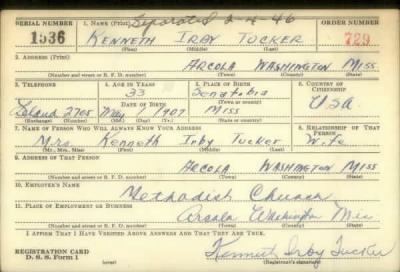 Separated 2-4-46
SERIAL NUMBER 1. NAME (Print) ORDER NUMBER
1536 KENNETH IRBY TUCKER 729
(First) (Middle) (Last)
2. ADDRESS (Print)
ARCOLA WASHINGTON MISS
(Number and street or R. F. D. number) (Town) (County) (State)
3. TELEPHONE 4. AGE IN YEARS 5. PLACE OF BIRTH 6. COUNTRY OF CITIZENSHIP
33 Senatobia
DATE OF BIRTH (Town or county)
2705 May 1 1907 Miss USA
(Exchange) (Number) (Mo.) (Day) (Yr.) (State or country)
7. NAME OF PERSON WHO WILL ALWAYS KNOW YOUR ADDRESS 8. RELATIONSHIP OF THAT PERSON
Mrs Kenneth Irby Tucker Wife
(Mr., Mrs., Miss) (First) (Middle) (Last)
9. ADDRESS OF THAT PERSON
ARCOLA WASHINGTON MISS
(Number and street or R. F. D. number) (Town) (County) (State)
10. EMPLOYER'S NAME
Methodist Church
11. PLACE OF EMPLOYMENT OR BUSINESS
Arcola Washington Miss
(Number and street or R. F. D. number) (Town) (County) (State)
I AFFIRM THAT I HAVE VERIFIED ABOVE ANSWERS AND THAT THEY ARE TRUE.
REGISTRATION CARD
D. S. S. Form 1 Kenneth Irby Tucker
(over) (Registrant's signature)